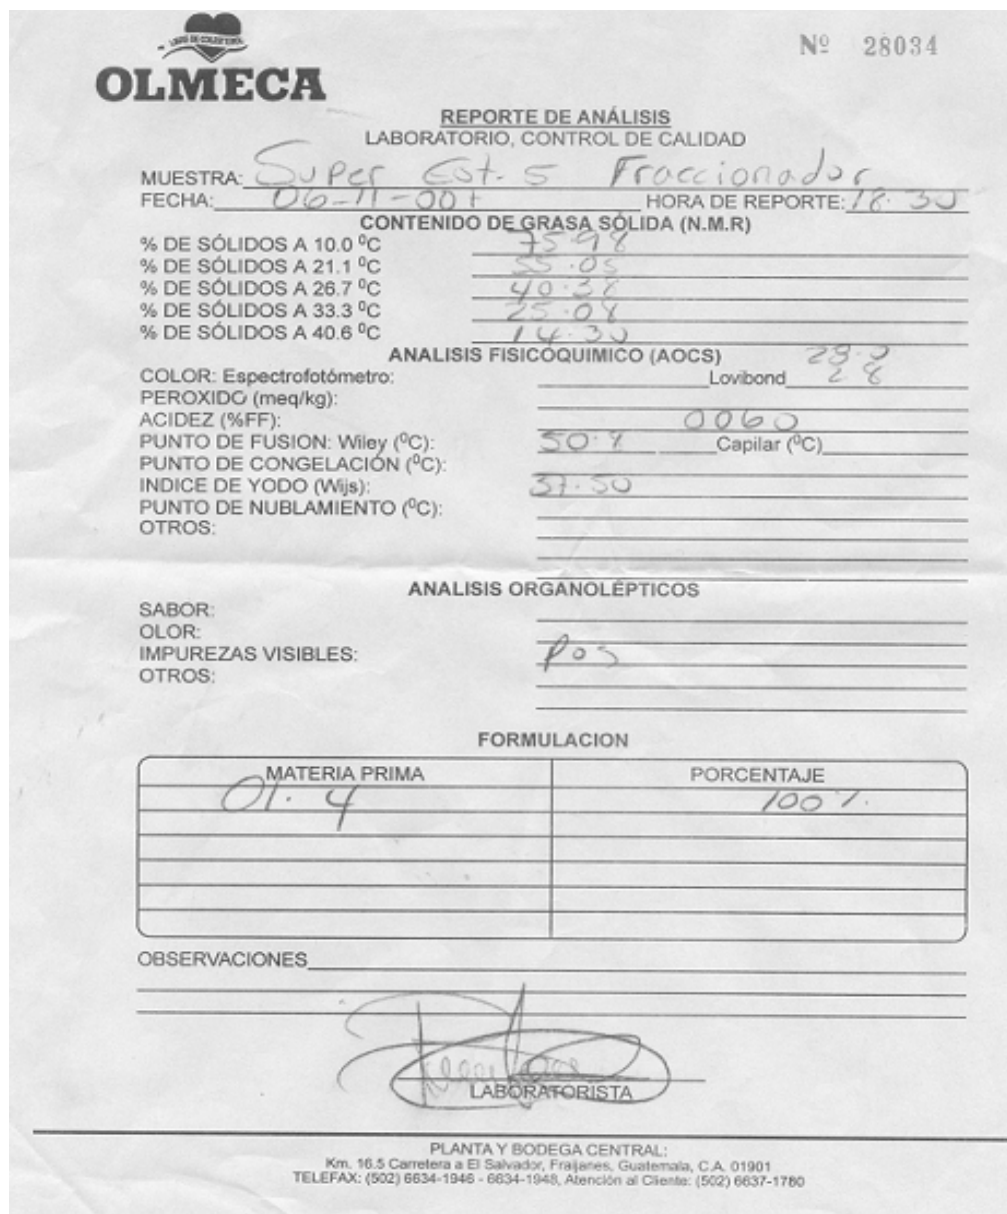 LIBRE DE COLESTEROL
OLMECA
Nº 28034
REPORTE DE ANÁLISIS
LABORATORIO, CONTROL DE CALIDAD
MUESTRA: Super Est. 5 Fraccionador
FECHA: 06-11-00 HORA DE REPORTE: 18:30
CONTENIDO DE GRASA SÓLIDA (N.M.R)
% DE SÓLIDOS A 10.0 ºC 75.98
% DE SÓLIDOS A 21.1 ºC 55.05
% DE SÓLIDOS A 26.7 ºC 40.38
% DE SÓLIDOS A 33.3 ºC 25.08
% DE SÓLIDOS A 40.6 ºC 14.30
ANALISIS FISICOQUIMICO (AOCS) 28.0
COLOR: Espectrofotómetro: Lovibond 2.8
PEROXIDO (meq/kg):
ACIDEZ (%FF): 0060
PUNTO DE FUSION: Wiley (ºC): 50.8 Capilar (ºC)
PUNTO DE CONGELACIÓN (ºC):
INDICE DE YODO (Wijs): 37.50
PUNTO DE NUBLAMIENTO (ºC):
OTROS:
ANALISIS ORGANOLÉPTICOS
SABOR:
OLOR:
IMPUREZAS VISIBLES: Pos
OTROS:
FORMULACION
MATERIA PRIMA PORCENTAJE
01. 4 100%.
OBSERVACIONES
LABORATORISTA
PLANTA Y BODEGA CENTRAL:
Km. 16.5 Carretera a El Salvador, Fraijanes, Guatemala, C.A. 01901
TELEFAX: (502) 6634-1946 - 6634-1948, Atención al Cliente: (502) 6637-1780